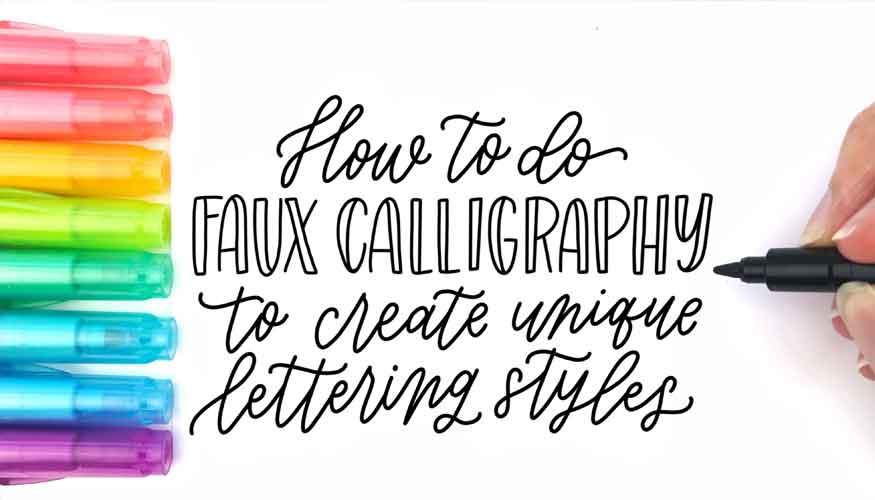 How to do
FAUX CALLIGRAPHY
to create unique
lettering styles